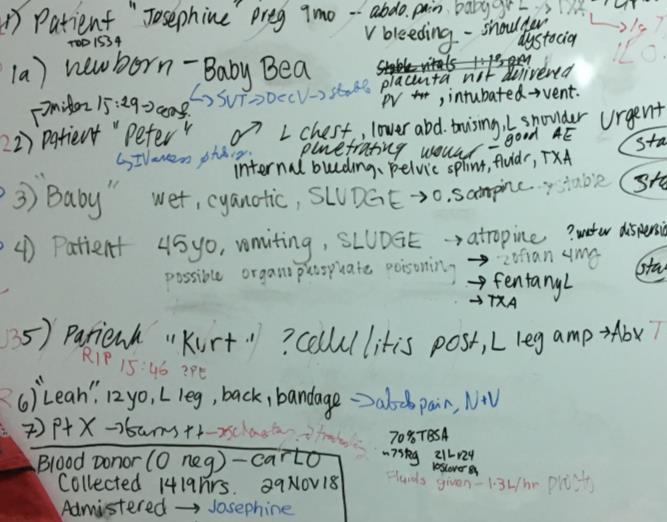 1) Patient "Josephine" preg 9mo - abdo. pain, baby girl → TXA
TOD 1534 V bleeding - shoulder dystocia
1a) newborn - Baby Bea
placenta not delivered
↳ SVT → DCCV → stable PV +++, intubated → vent.
2) Patient "Peter" ♂ L chest, lower abd. bruising, L shoulder Urgent
penetrating wound - good AE
internal bleeding, pelvic splint, fluids, TXA
3) "Baby" wet, cyanotic, SLUDGE → stable
4) Patient 45yo, vomiting, SLUDGE → atropine ?water
possible organophosphate poisoning → zofran 4mg
→ fentanyl
→ TXA
5) Patient "Kurt" ?cellulitis post, L leg amp → Abx
RIP 15:46 ?PE
6) "Leah". 12yo, L leg, back, bandage → abdo pain, N+V
7) Pt X → burns ++
70% TBSA
~75kg 21L/24
Fluids given - 1.3L/hr
Blood Donor (O neg) - CARLO
Collected 1419hrs. 29NOV18
Admistered → Josephine